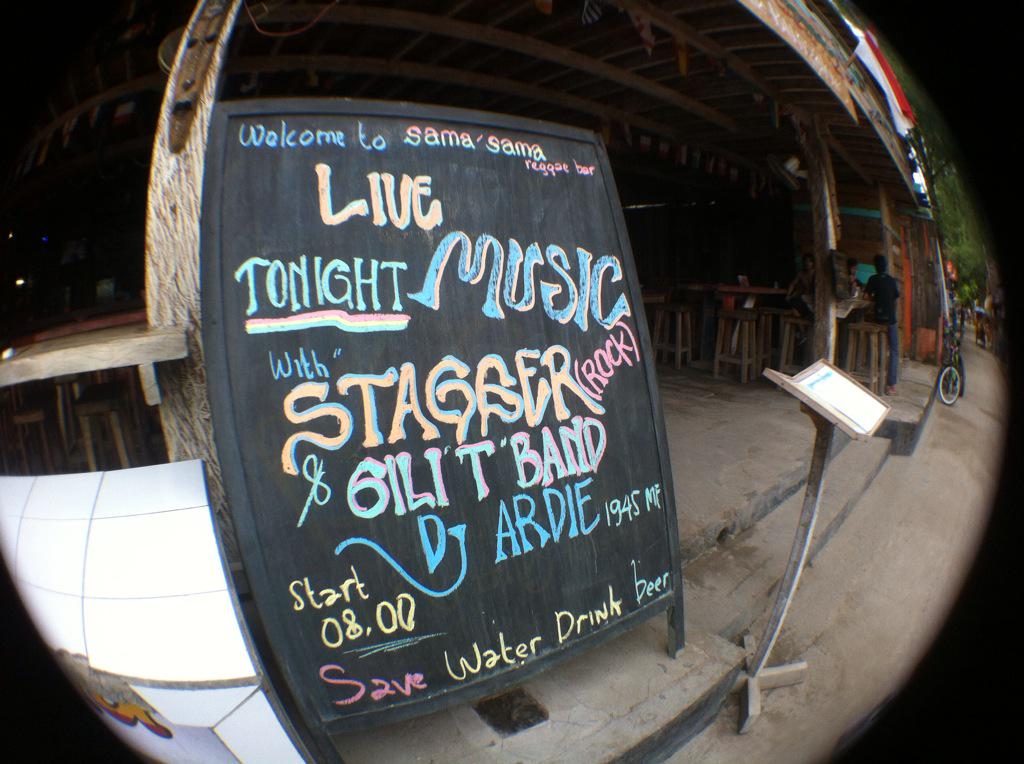 Welcome to sama-sama
reggae bar
LIVE
TONIGHT MUSIC
With"
STAGGER (ROCK)
& GILI'T" BAND
DJ ARDIE 1945 MF
Start
08.00
Save Water Drink beer